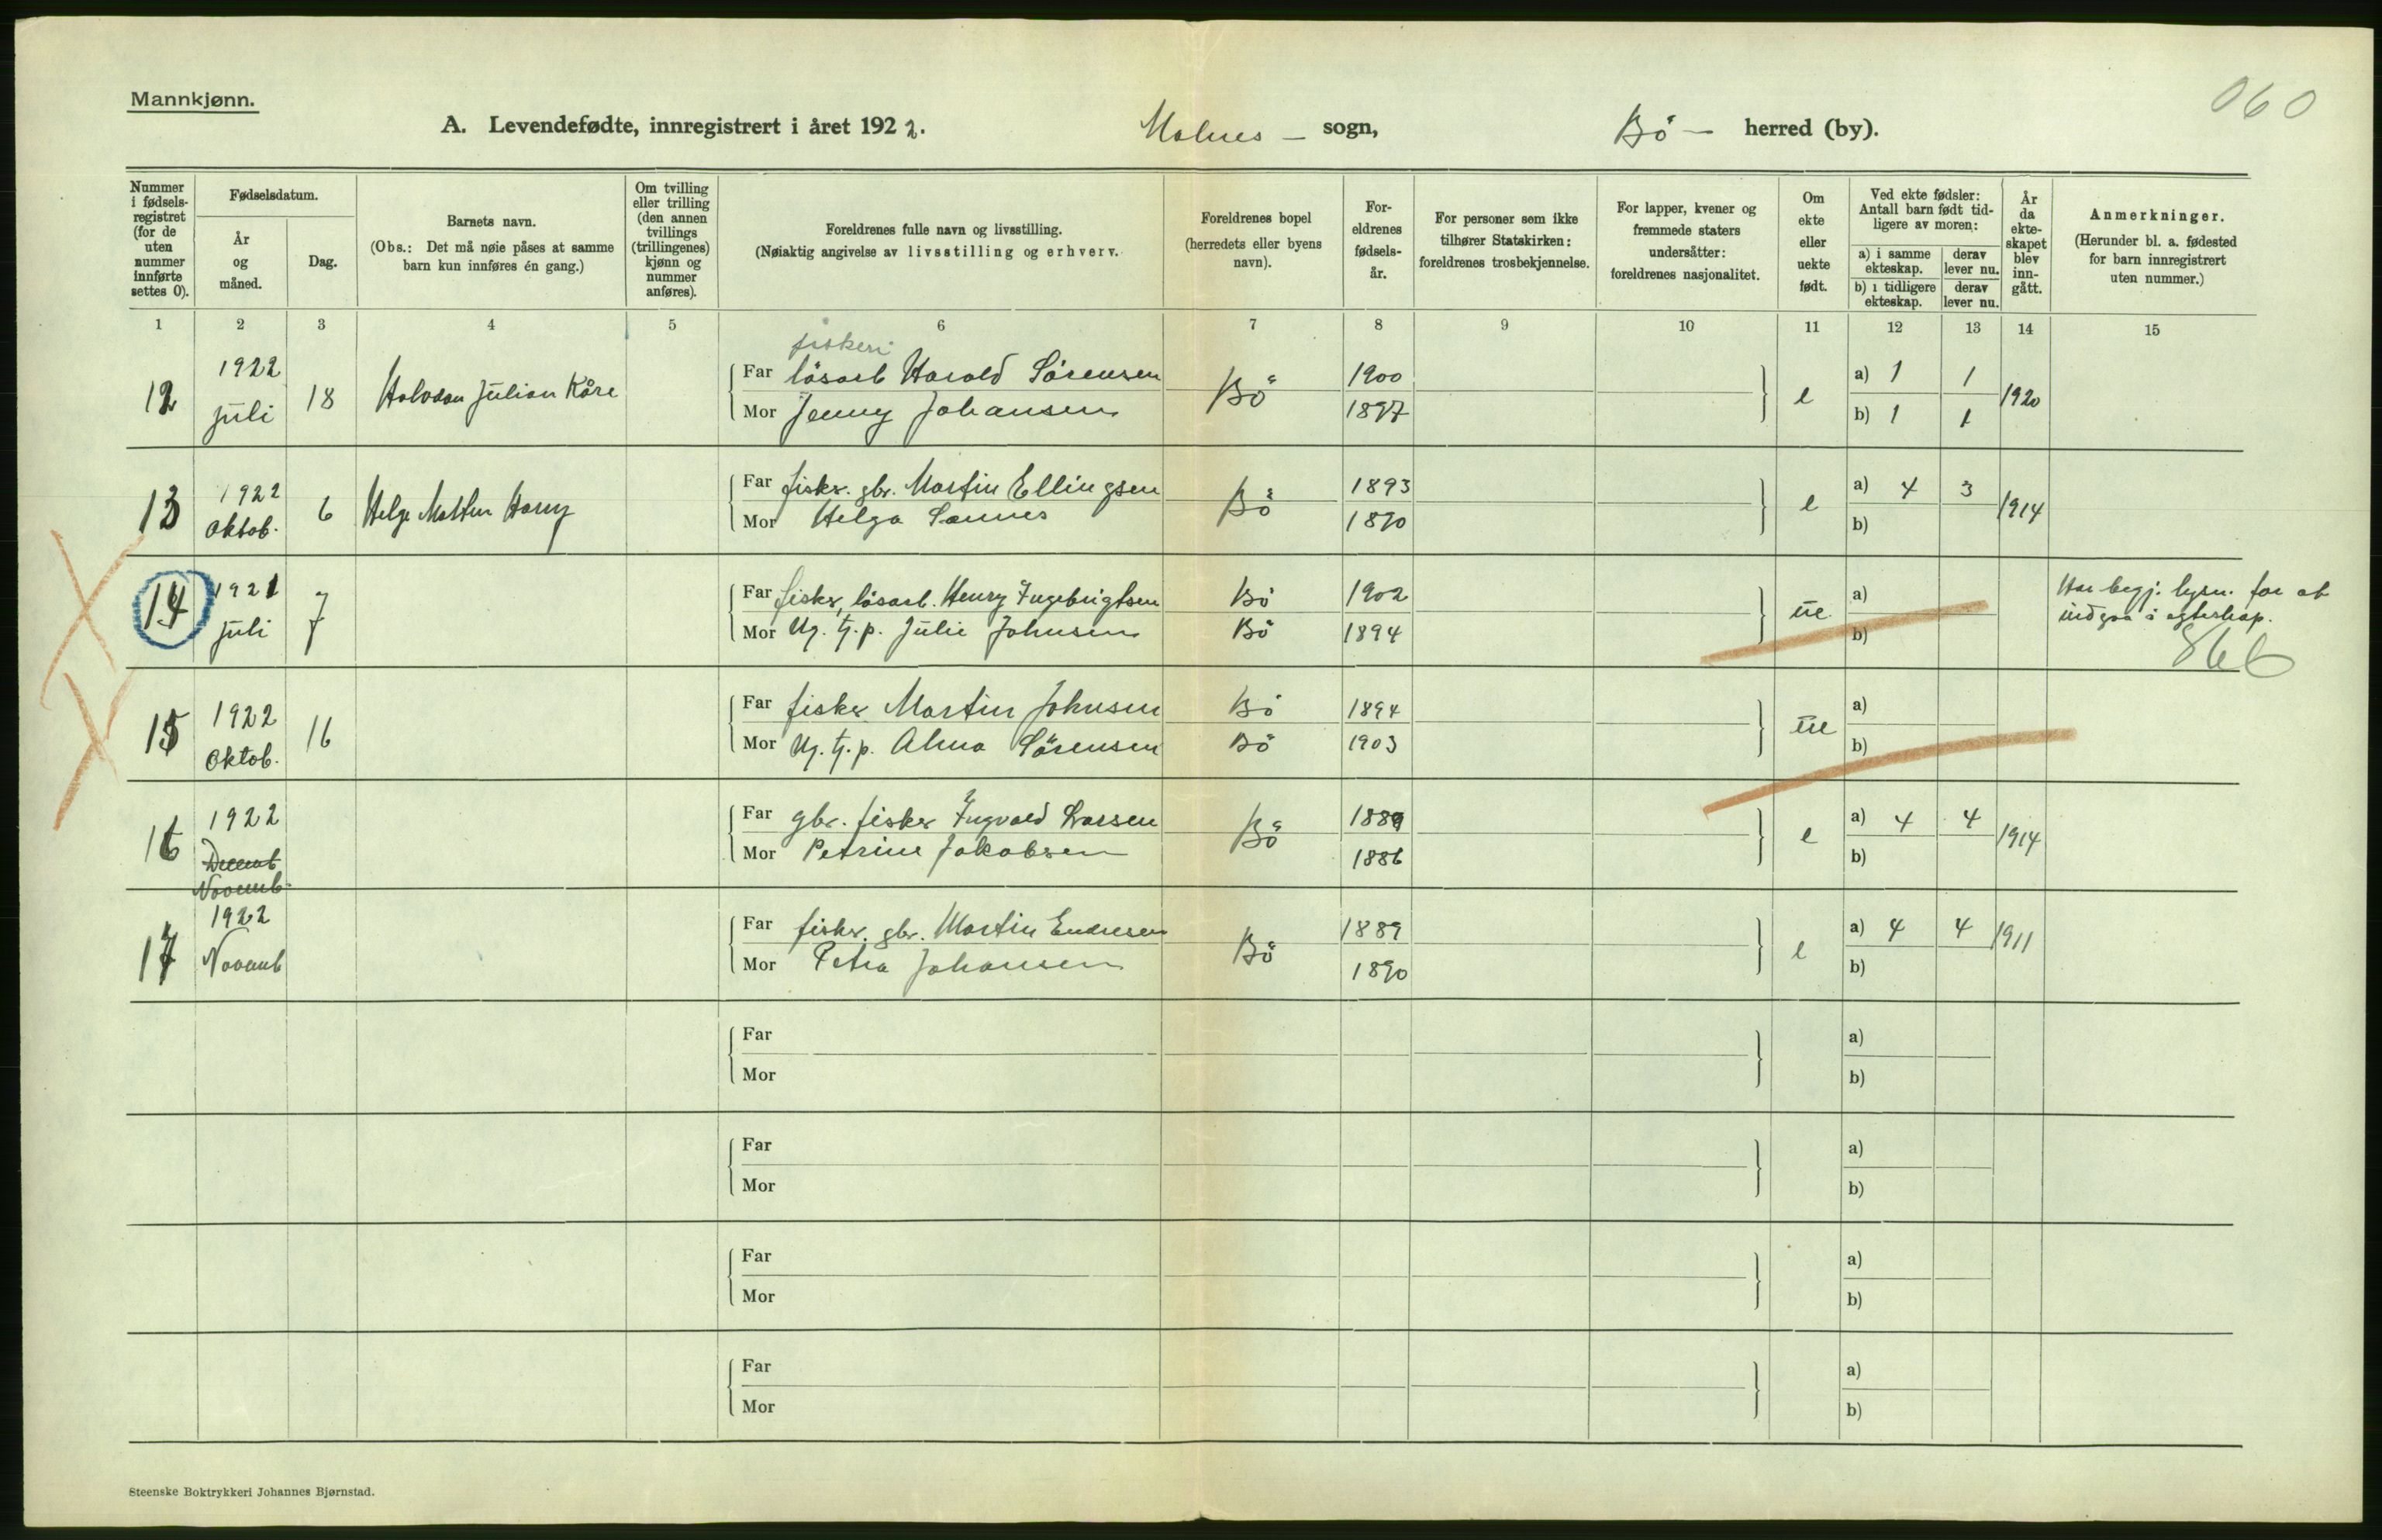 Mannkjønn.
060
A. Levendefødte, innregistrert i året 1922. Malnes – sogn, Bö – herred (by).
Nummer i fødselsregistret (for de uten nummer innførte settes 0).
Fødselsdatum.
År og måned.
Dag.
Barnets navn.
(Obs.: Det må nøie påses at samme barn kun innføres én gang.)
Om tvilling eller trilling (den annen tvillings (trillingenes) kjønn og nummer anføres).
Foreldrenes fulle navn og livsstilling.
(Nøiaktig angivelse av livsstilling og erhverv.
Foreldrenes bopel (herredets eller byens navn).
Foreldrenes fødselsår.
For personer sem ikke tilhører Statskirken: foreldrenes trosbekjennelse.
For lapper, kvener og fremmede staters undersåtter: foreldrenes nasjonalitet.
Om ekte eller uekte født.
Ved ekte fødsler: Antall barn født tidligere av moren:
a) i samme ekteskap.
derav lever nu.
b) i tidligere ekteskap.
derav lever nu.
År da ekteskapet blev inngått.
Anmerkninger.
(Herunder bl. a. fødested for barn innregistrert uten nummer.)
1 2 3 4 5 6 7 8 9 10 11 12 13 14 15
fiskeri
12 1922 juli 18 Halvdan Julian Kåre Far lösarb Harald Sörensen Bö 1900 e a) 1 1 1920
Mor Jenny Johansen 1897 b) 1 1
13 1922 Oktob. 6 Helge Harry Far fisker. gbr. Martin Ellingsen Bö 1893 e a) 4 3 1914
Mor Helga Sannes 1890 b)
14 1921 juli 7 Far fisker, lösarb. Henry Ingebrigtsen Bö 1902 ue a) Har begj. lysn. for at
Mor Ug. tj. p. Julie Johnsen Bö 1894 b) indgaa i egteskap.
866
15 1922 Oktob. 16 Far fisker Martin Johnsen Bö 1894 ue a)
Mor Ug. tj. p. Alma Sörensen Bö 1903 b)
16 1922 Decemb Novemb. Far gbr. fisker Ingvald Larsen Bö 1889 e a) 4 4 1914
Mor Petrine Jakobsen 1886 b)
17 1922 Novemb Far fisker. gbr. Martin Endresen Bö 1889 e a) 4 4 1911
Mor Petra Johansen 1890 b)
Far a)
Mor b)
Far a)
Mor b)
Far a)
Mor b)
Far a)
Mor b)
Steenske Boktrykkeri Johannes Bjørnstad.